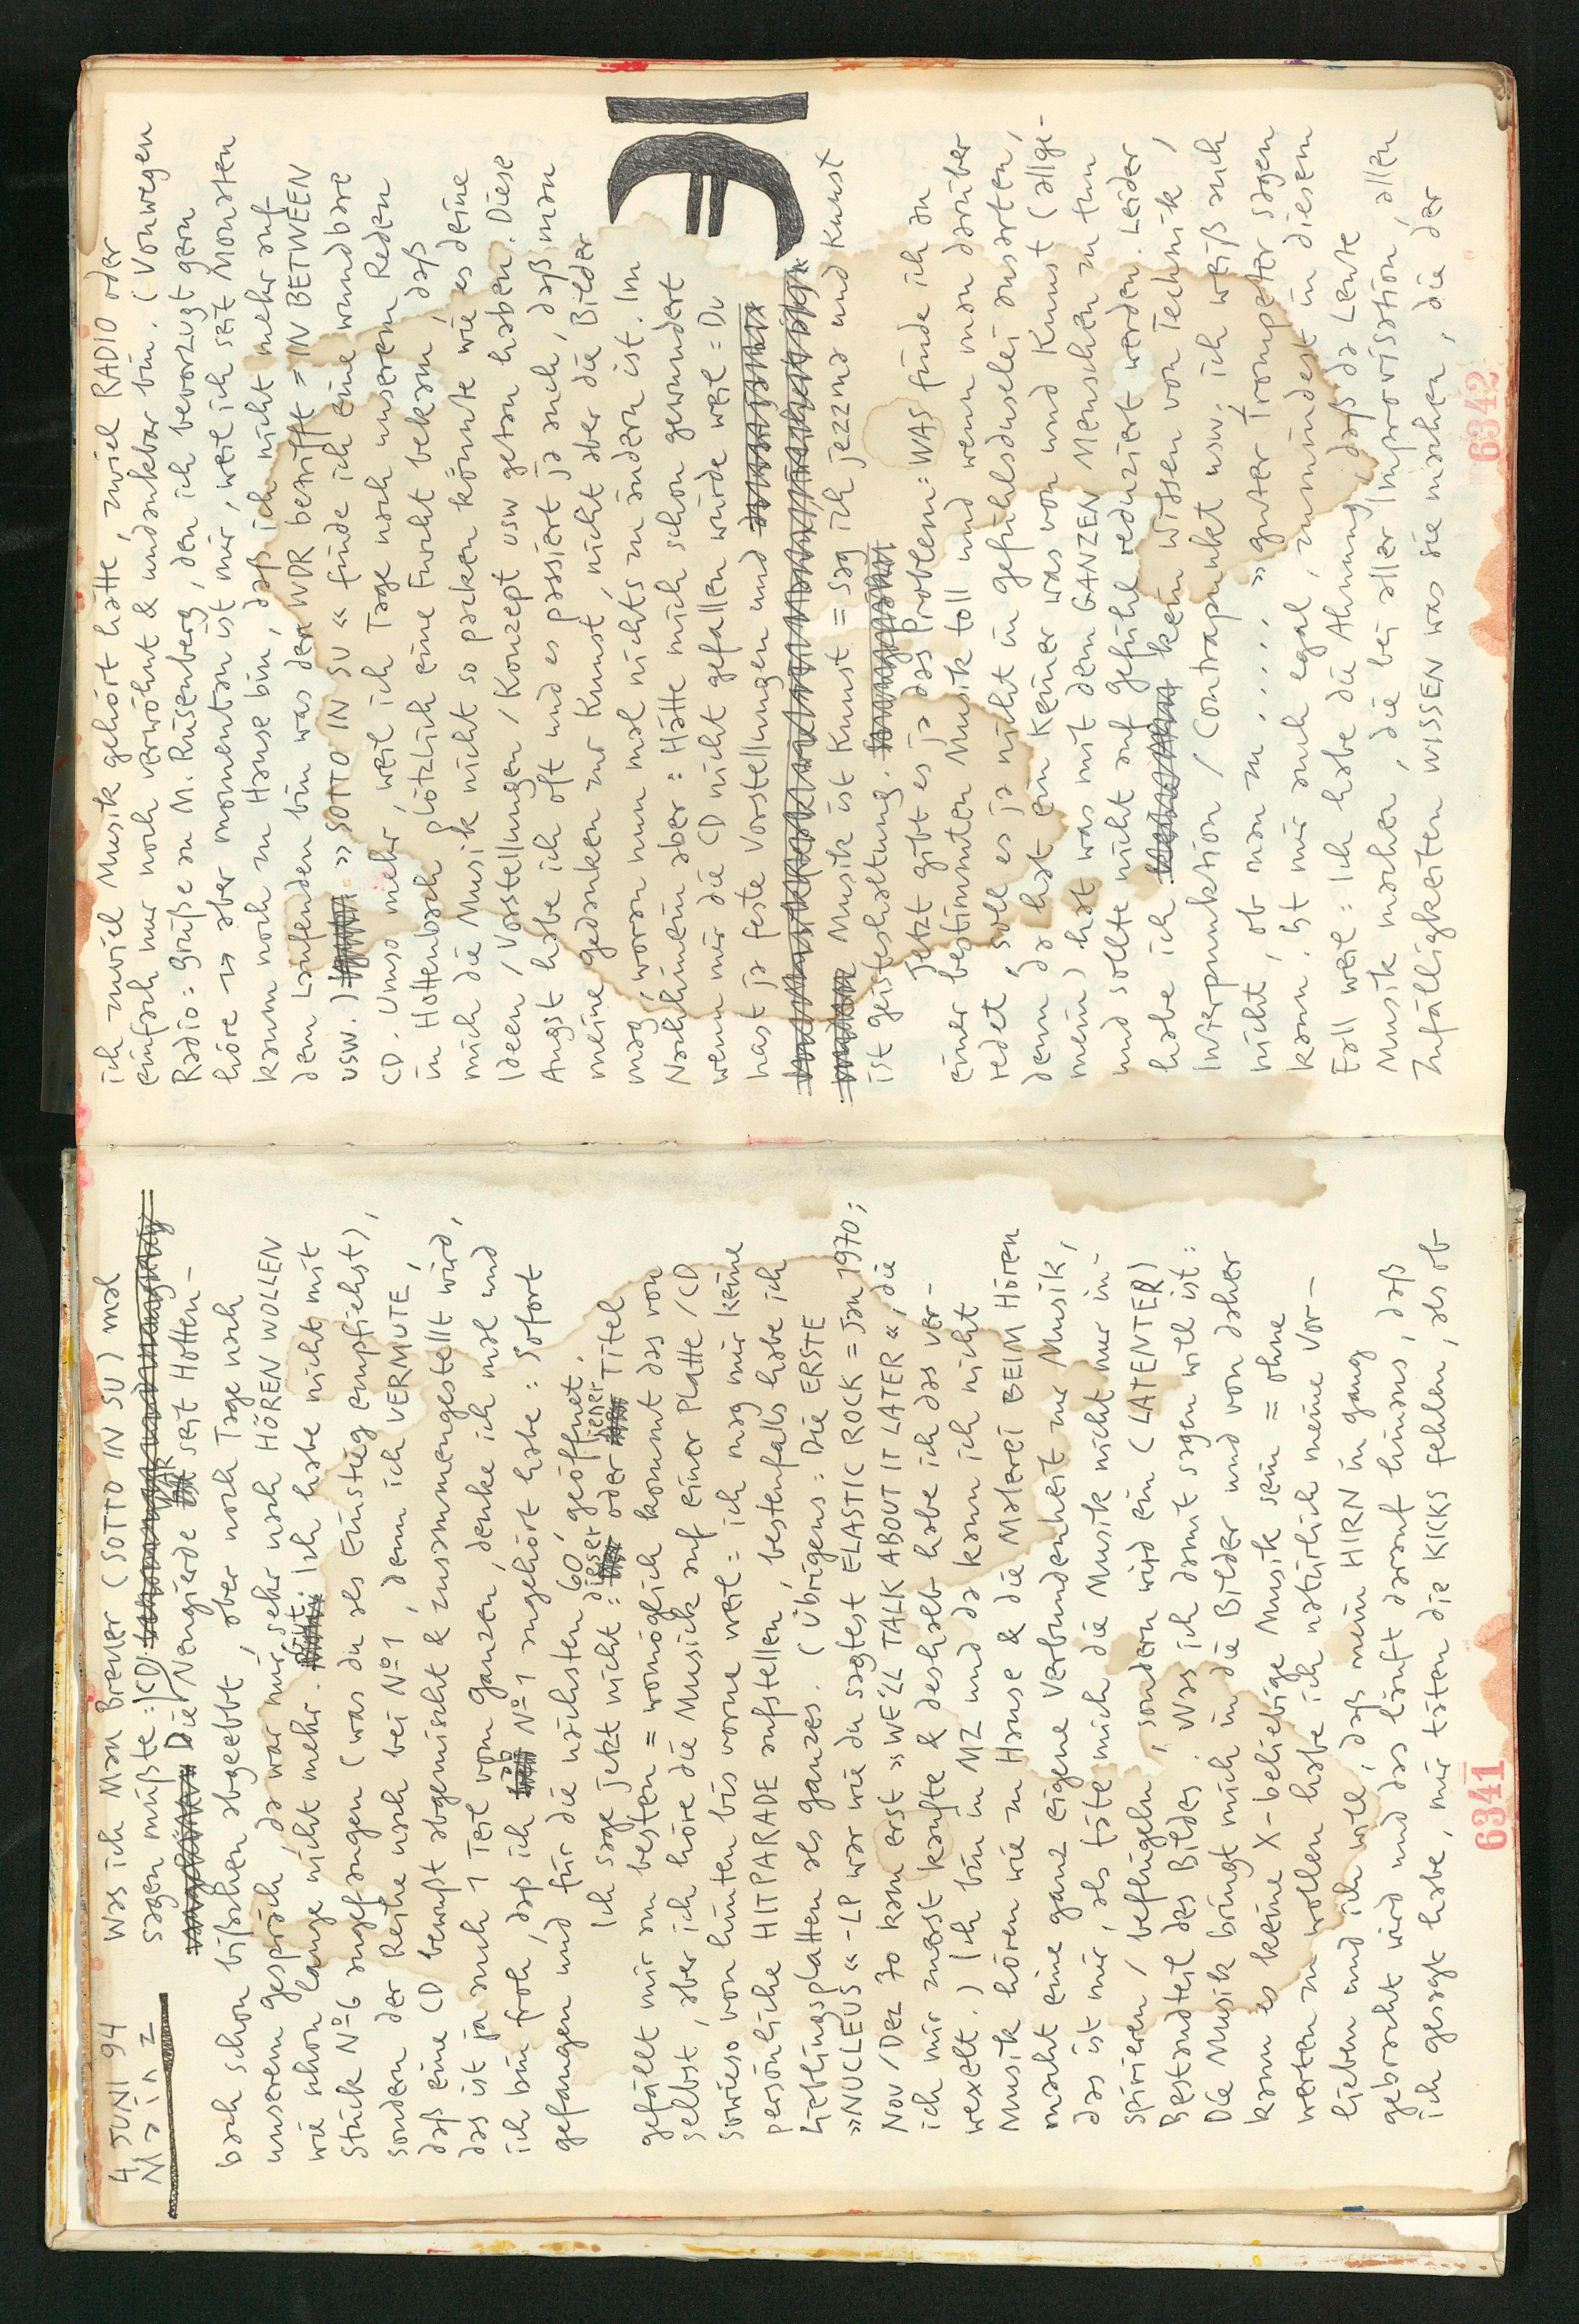 4 JUNI 94
Mainz
Was ich Man Breuer (SOTTO IN SU) mal
sagen müßte: CD.
Die Neugierde WAR seit Hotten-
bach schon bißchen abgeebbt, aber noch Tage nach
unserem gespräch, da war mir sehr nach HÖREN WOLLEN
wie schon lange nicht mehr. Gut: Ich habe nicht mit
Stück No 6 angefangen (was du als Einstieg empfiehlst),
sondern der Reihe nach bei No 1, denn ich VERMUTE,
daß eine CD bewußt abgemischt & zusammengestellt wird,
das ist ja auch 1 Teil vom ganzen, denke ich mal und
ich bin froh, daß ich No 1 angehört habe: Sofort
gefangen und für die nächsten 60' geöffnet.
Ich sage jetzt nicht: dieser oder jener Titel
gefällt mir am besten = womöglich kommt das von
selbst, aber ich höre die Musick auf einer Platte/CD
sowieso von hinten bis vorne weil = ich mag mir keine
persönliche HITPARADE aufstellen, bestenfalls habe ich
Lieblingsplatten als ganzes. (Übrigens: Die ERSTE
»NUCLEUS«-LP war wie du sagtest ELASTIC ROCK = Jan 1970;
Nov/Dez 70 kam erst »WE'LL TALK ABOUT IT LATER«, die
ich mir zuerst kaufte & deshalb habe ich das ver-
wexelt.) Ich bin in MZ und da kann ich nicht
Musik hören wie zu Hause & die Malerei BEIM Hören
macht eine ganz eigene Verbundenheit zur Musik,
das ist mir, als täte mich die Musik nicht nur in-
spirieren/beflügeln, sondern wird ein (LATENTER)
Bestandteil des Bildes. Was ich damit sagen will ist:
Die Musik bringt mich in die Bilder und von daher
kann es keine X-beliebige Musik sein = ohne
werten zu wollen habe ich natürlich meine Vor-
lieben und ich will, daß mein HIRN in gang
gebracht wird und das läuft darauf hinaus, daß
ich gesagt habe, mir täten die KICKS fehlen, als ob
6341
ich zuviel Musik gehört hätte, zuviel RADIO oder
einfach nur noch verwöhnt & undankbar bin. (Vonwegen
Radio: grüße an M. Rüsenberg, den ich bevorzugt gern
höre → aber momentan ist mir, weil ich seit Monaten
kaum noch zu Hause bin, daß ich nicht mehr auf
dem Laufenden bin was den WDR betrifft = IN BETWEEN
usw.) »SOTTO IN SU« finde ich eine wundbare
CD. Umso mehr, weil ich Tage nach unserem Reden
in Hottenbach plötzlich eine Furcht bekam, daß
mich die Musik nicht so packen könnte, wie es deine
Ideen/Vorstellungen/Konzept usw getan haben. Diese
Angst habe ich oft und es passiert ja auch, daß man
meine gedanken zur Kunst, nicht aber die Bilder
mag, woran nun mal nichts zu ändern ist. Im
Nachhinein aber: Hätte mich schon gewundert
wenn mir die CD nicht gefallen würde weil = Du
hast ja feste Vorstellungen und
Musik ist Kunst = sag ich jezz ma und Kunst
ist geisteshaltung.
Jetzt gibt es ja das Problem: WAS finde ich an
einer bestimmten Musik toll und wenn man darüber
redet, soll es ja nicht in gefühlsduselei ausarten,
denn da hat ein Keiner was von und Kunst (allge-
mein) hat was mit dem GANZEN Menschen zu tun
und sollte nicht auf gefühl reduziert werden. Leider
habe ich kein wissen von Technik,
Interpunktion/Contrapunkt usw. ich weiß auch
nicht, ob man zu .... »guter Trompeter sagen
kann. Ist mir auch egal, zumindest in diesem
Fall weil = Ich habe die Ahnung, daß da Leute
Musik machen, die bei aller Improvisation, allen
Zufälligkeiten WISSEN was sie machen, die der
6342